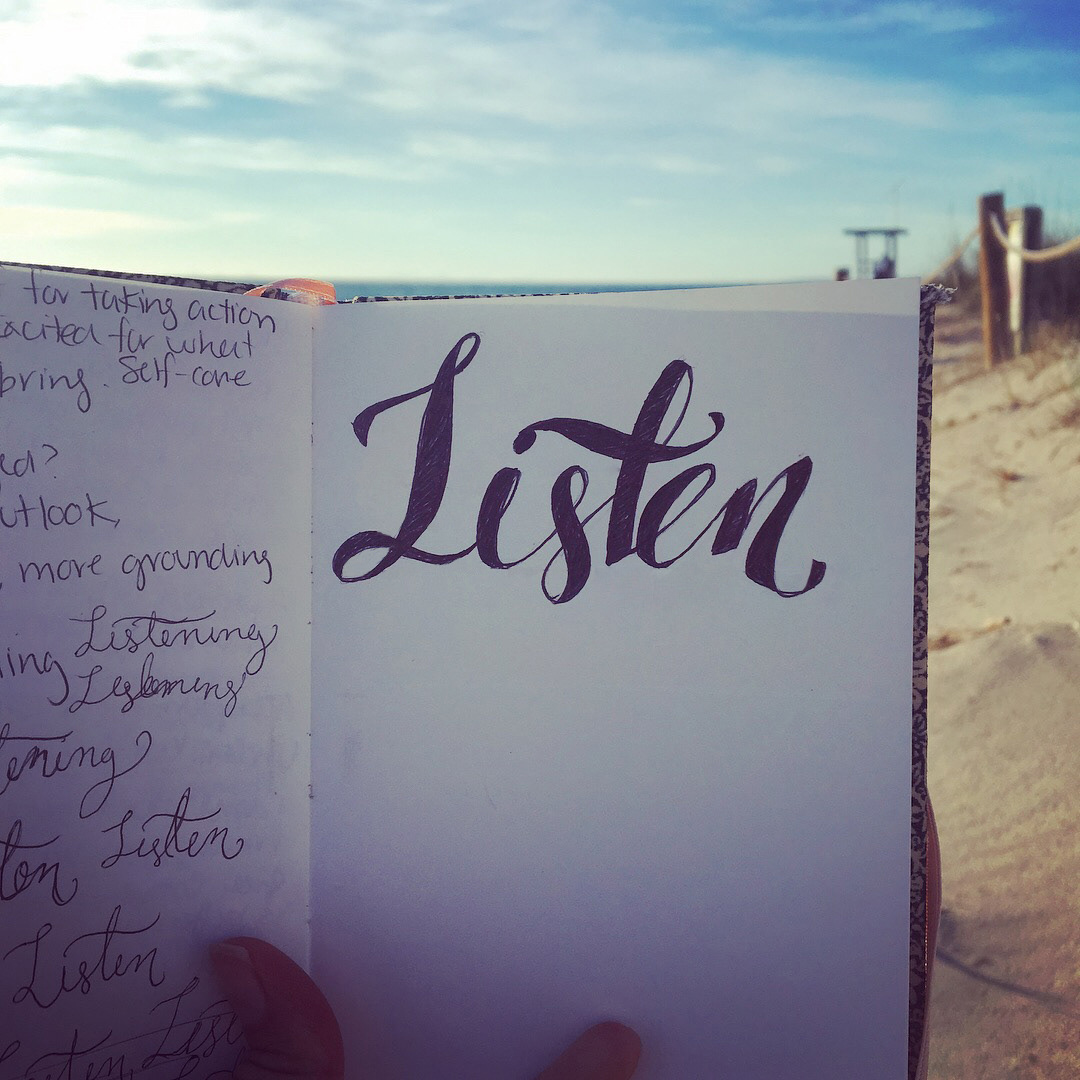 for taking action
excited for what
bring. Self-care
outlook,
, more grounding
Listening
Listening
Listen
Listen
Listen
Listen